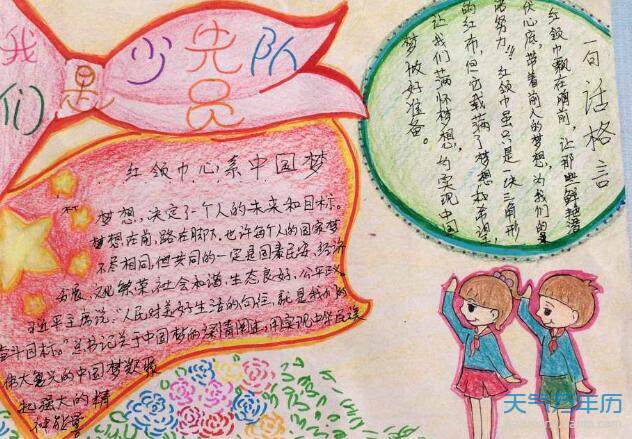 我们是少先队员
红领巾心系中国梦
梦想,决定了一个人的未来和目标。
梦想在前,路在脚下。也许每个人的国家梦
不尽相同,但共同的一定是国泰民安,经济
发展,文化繁荣,社会和谐,生态良好,公平正义
习近平主席说:“人民对美好生活的向往,就是我们的
奋斗目标。”总书记关于中国梦的深情阐述,用实现中华民族
伟大复兴的中国梦
起强大的精
神能量
一句话格言
红领巾飘在胸前,让那
心底,带着前人的梦想,为我们的
努力!红领巾虽只是一块三角形
的红布,但它载满了梦想和希望
让我们满怀梦想,为实现中国
梦做好准备。
天气万年历